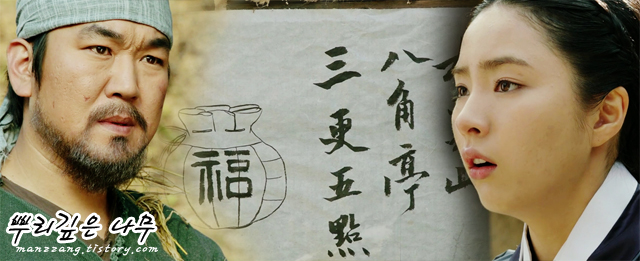 八角亭
三更五點
福
뿌리깊은 나무
manzzang.tistory.com